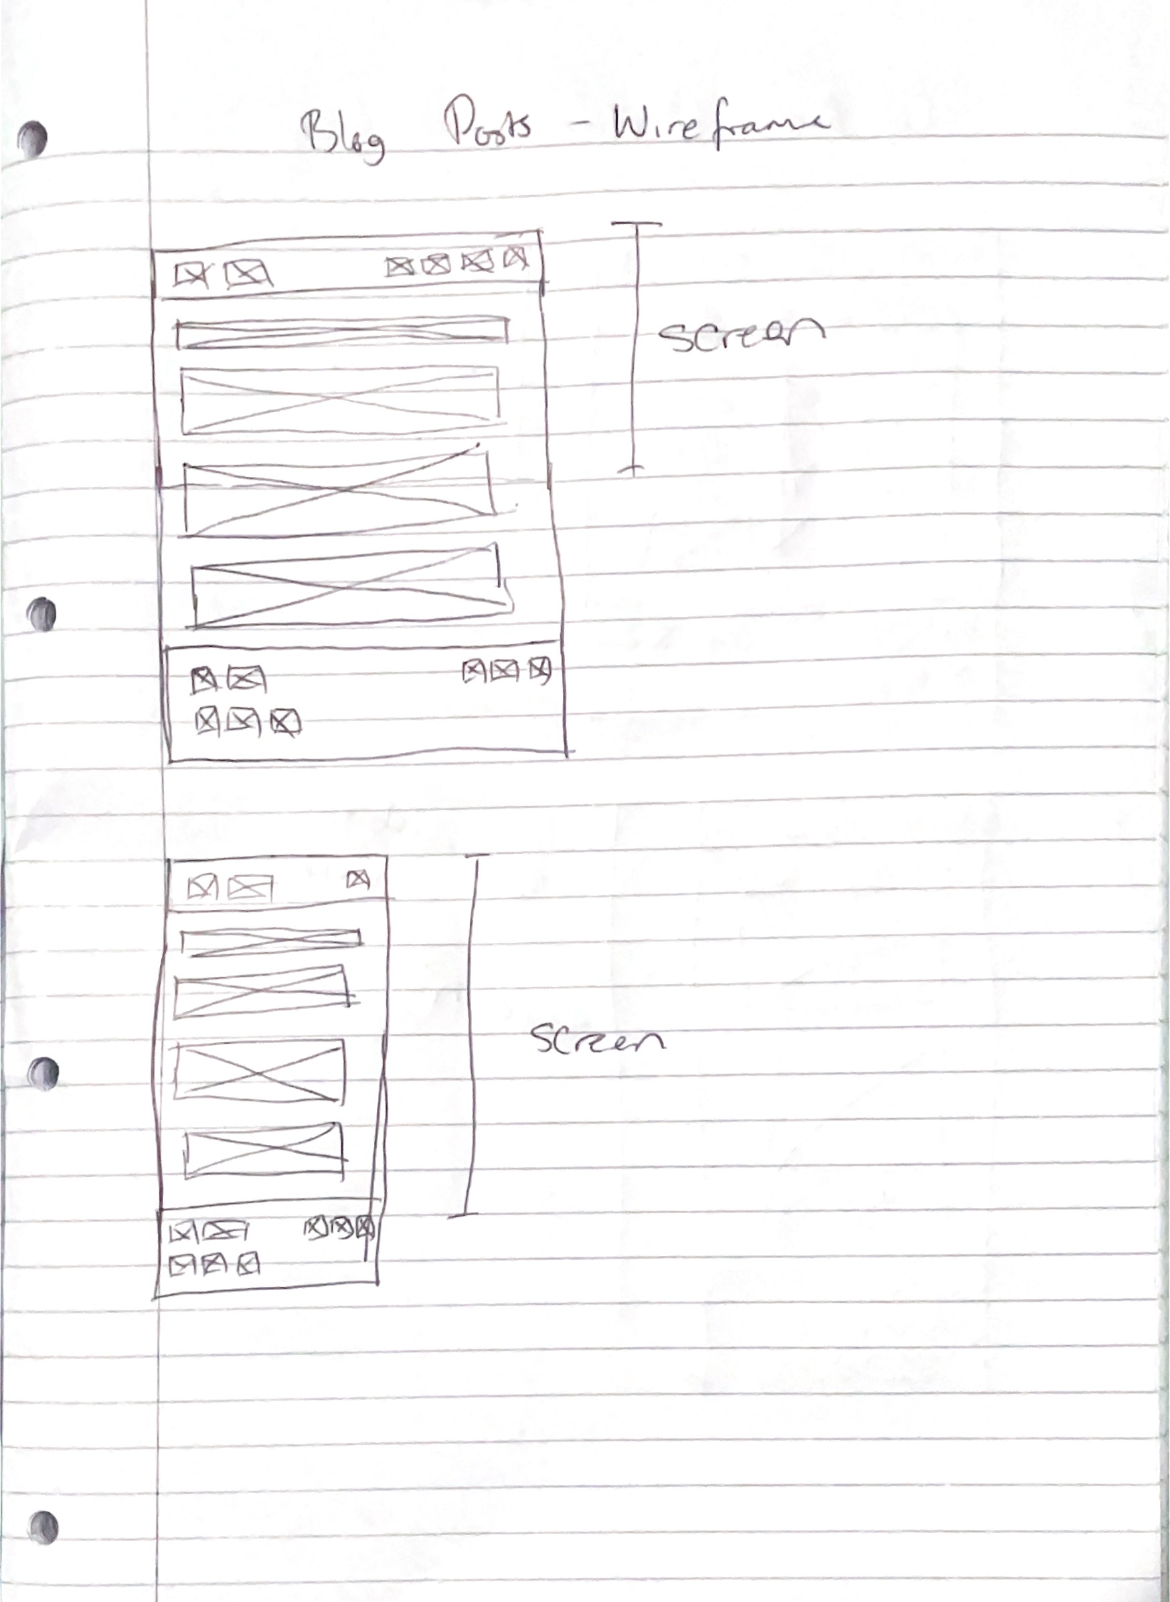 Blog Posts - Wireframe
screen
screen